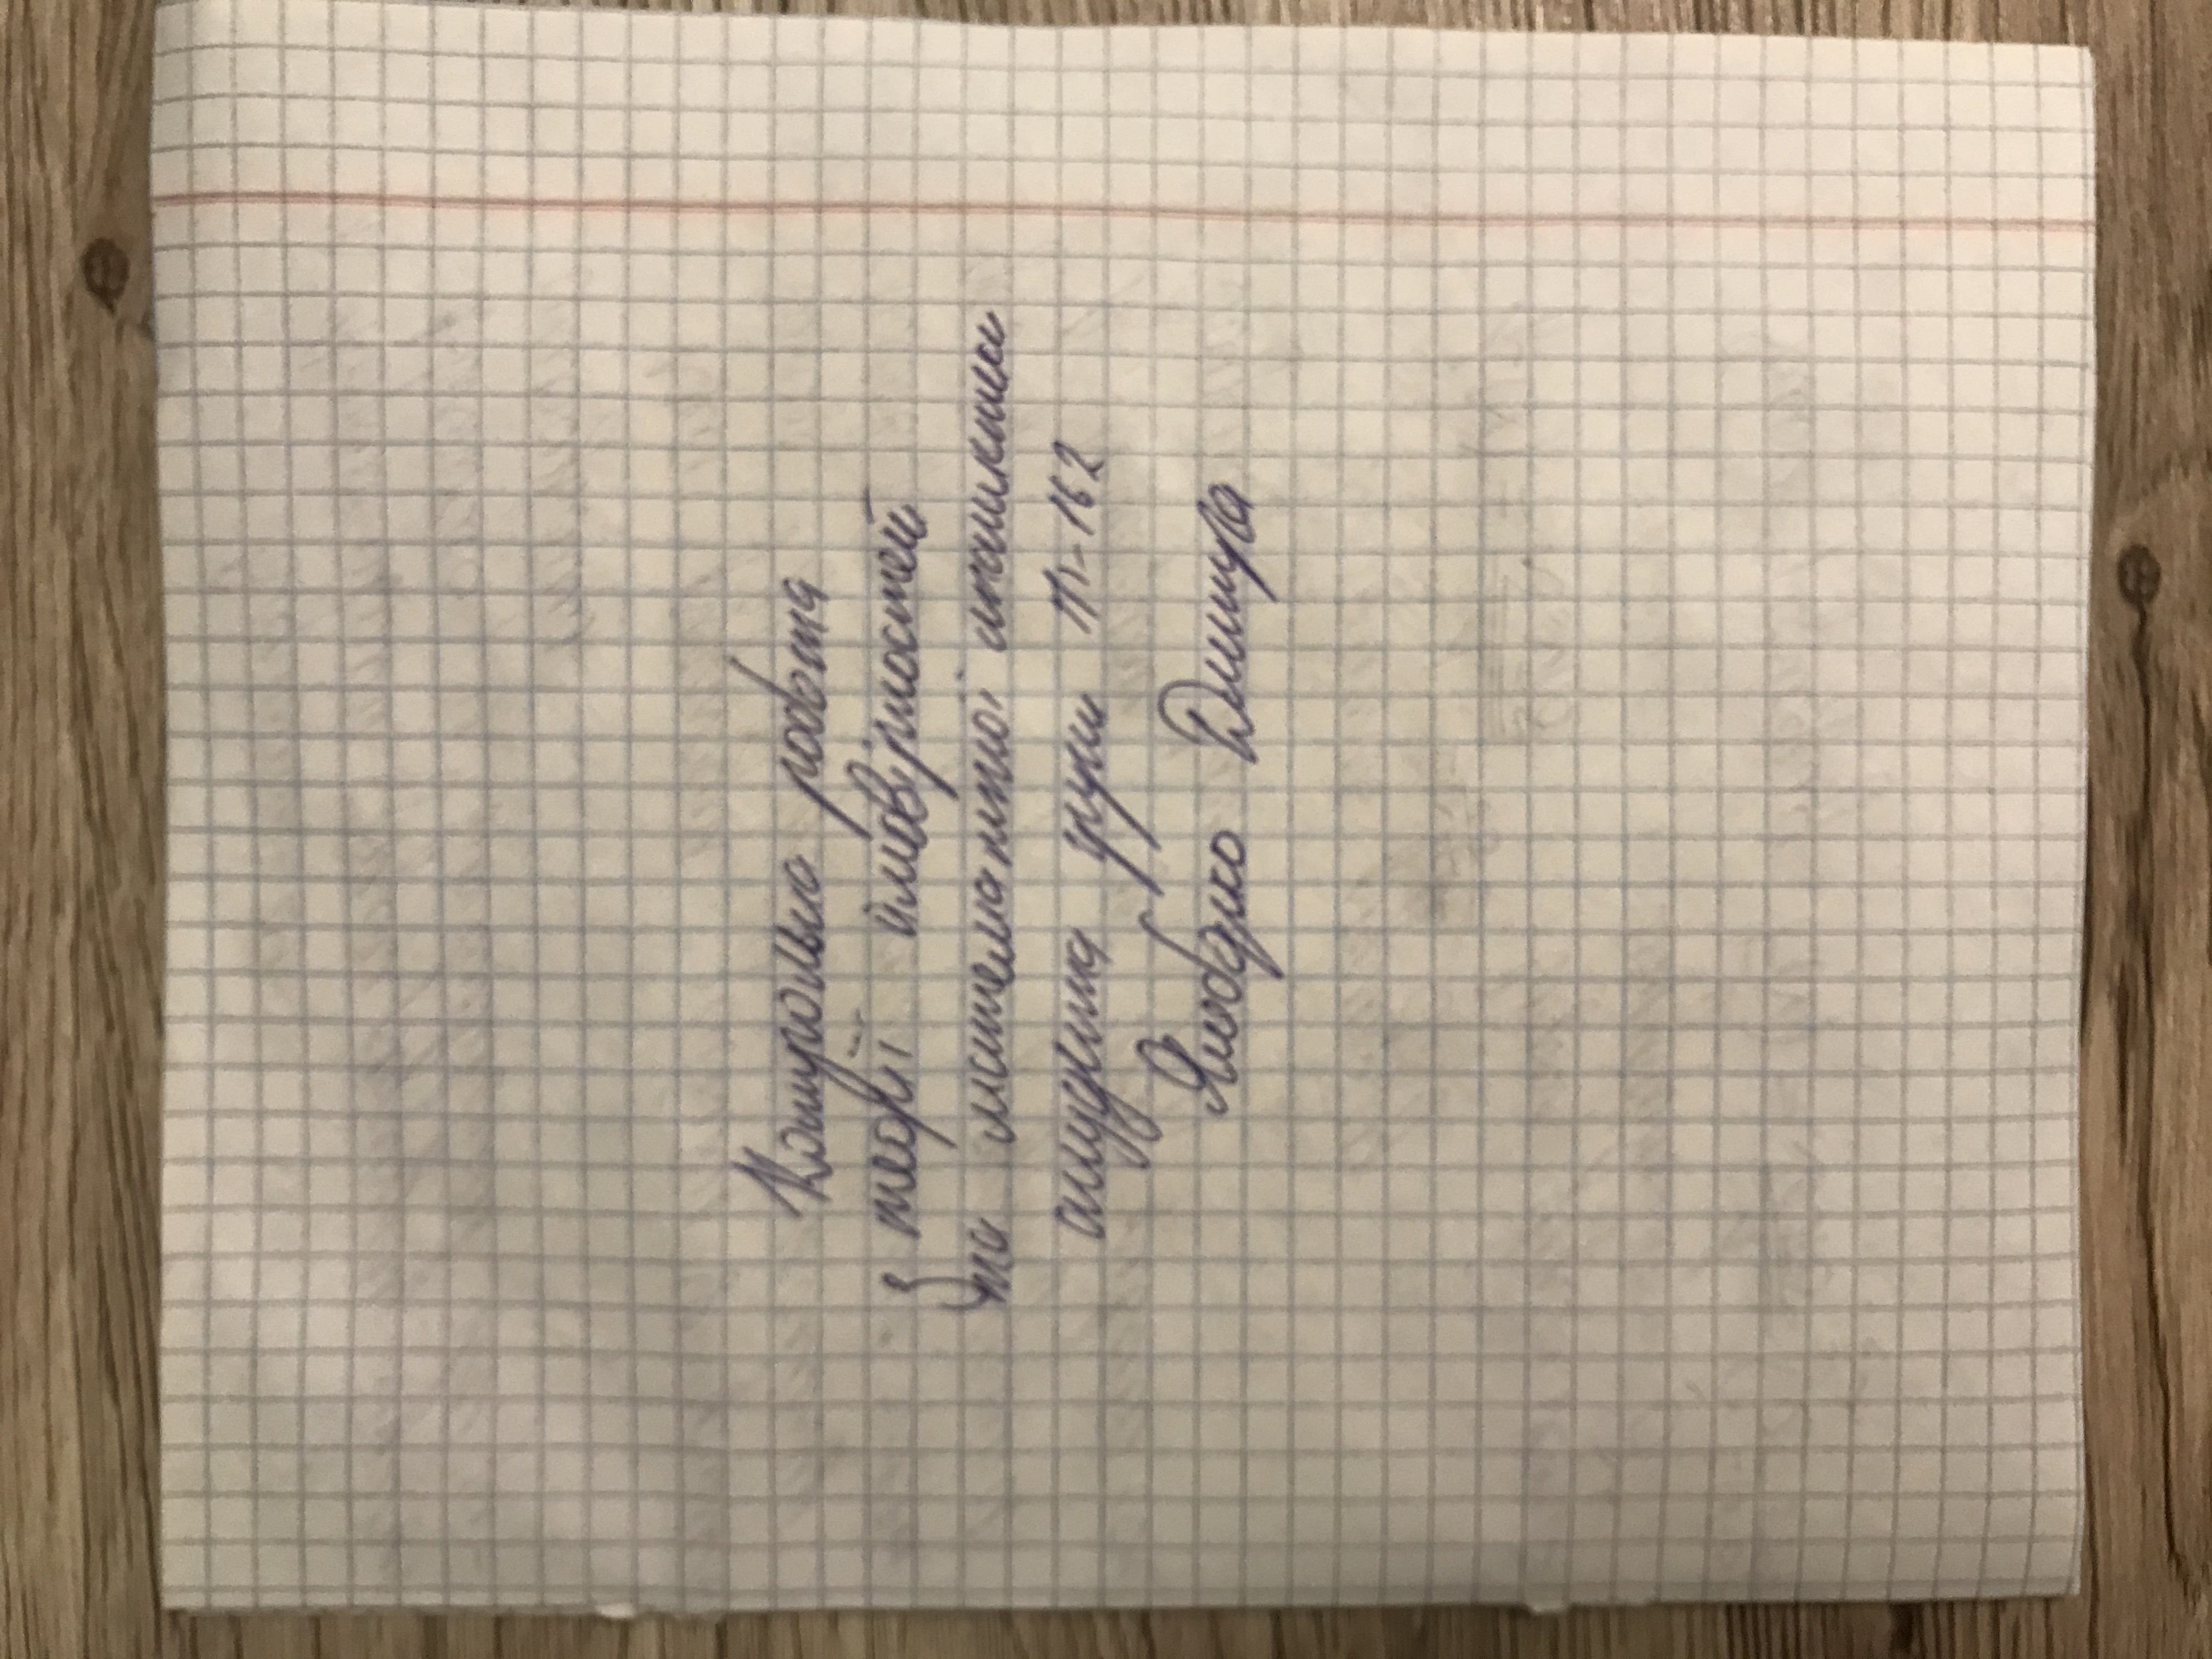 Контрольна робота
з теорії ймовірностей
та математичної статистики
студента групи ПІ-162
Дмитра